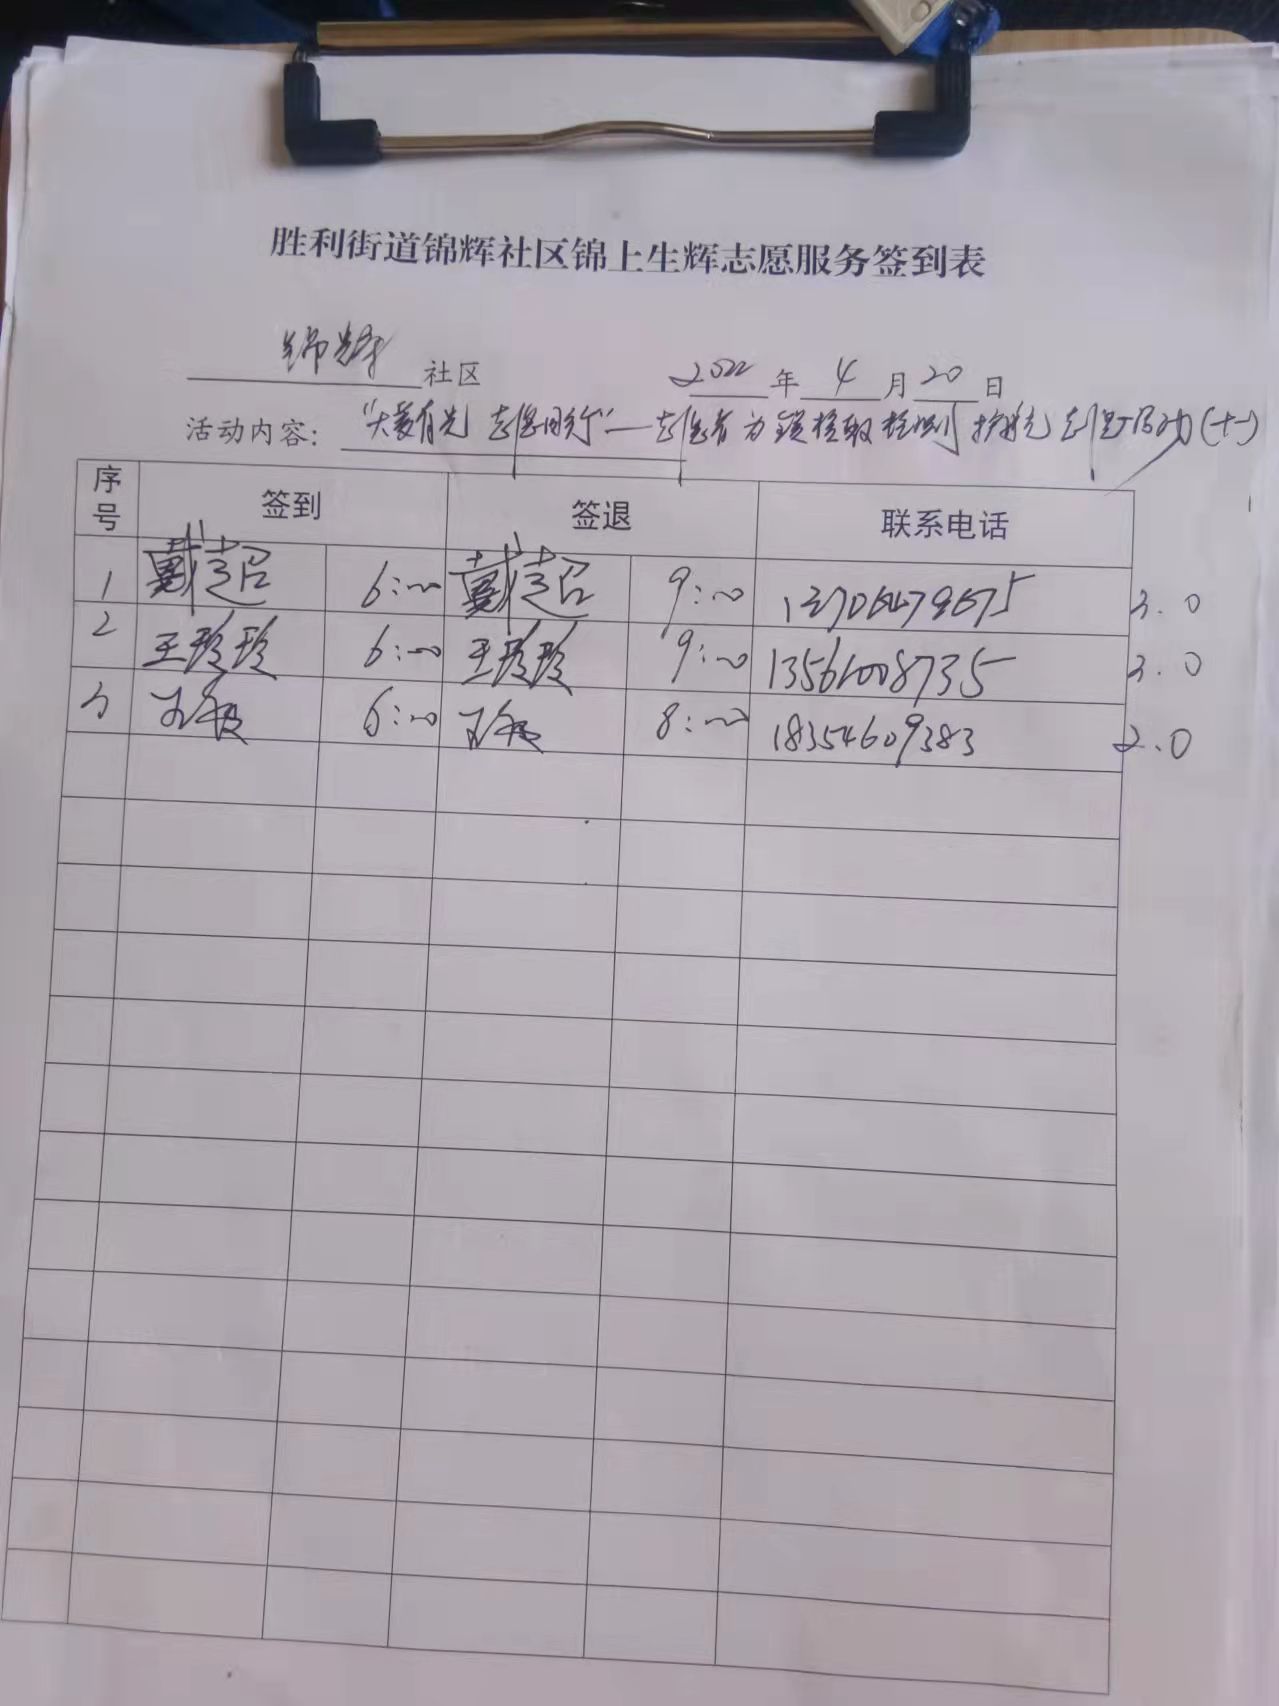 胜利街道锦辉社区锦上生辉志愿服务签到表
锦辉 社区 2022 年 4 月 20 日
活动内容： 志愿同行"—志愿者为 核酸检测 护航志愿活动(十一)
序号 签到 签退 联系电话
1 戴超 6:00 戴超 9:00 3.0
2 王玲玲 6:00 王玲玲 9:00 13561008735 3.0
3 6:00 8:00 18354609383 2.0